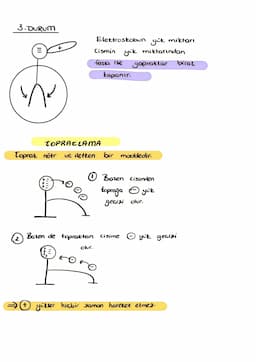 3. DURUM
Elektroskobun yük miktarı
cismin yük miktarından
fazla ise yapraklar biraz
kapanır.
TOPRAKLAMA
Toprak nötr ve iletken bir maddedir.
1 Bazen cisimden
toprağa - yük
geçişi olur.
2 Bazen de topraktan cisime - yük geçişi
olur.
⇒ + yükler hiçbir zaman hareket etmez.